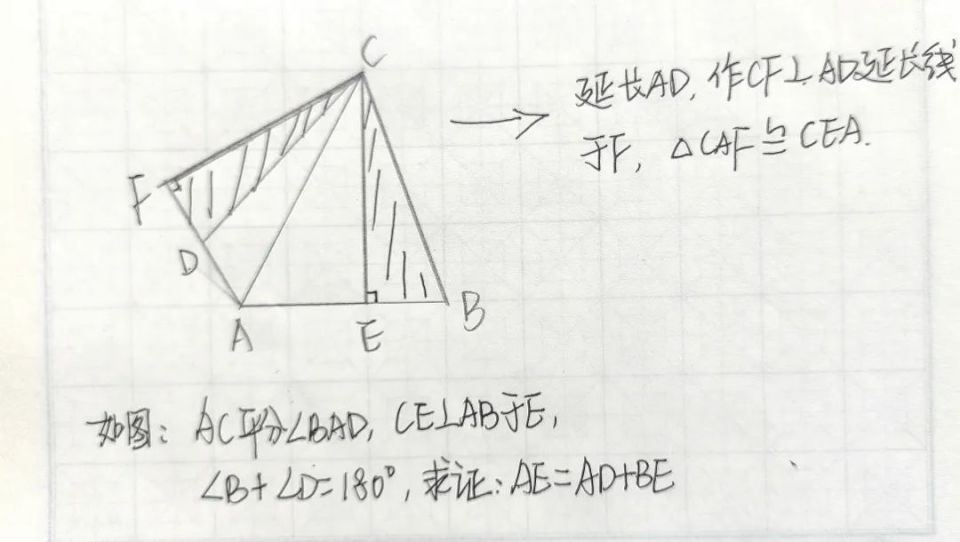 C
延长AD, 作CF⊥AD延长线
于F, △CAF≌CEA.
F
D
A
E
B
如图: AC平分∠BAD, CE⊥AB于E,
∠B+∠D=180°, 求证: AE=AD+BE